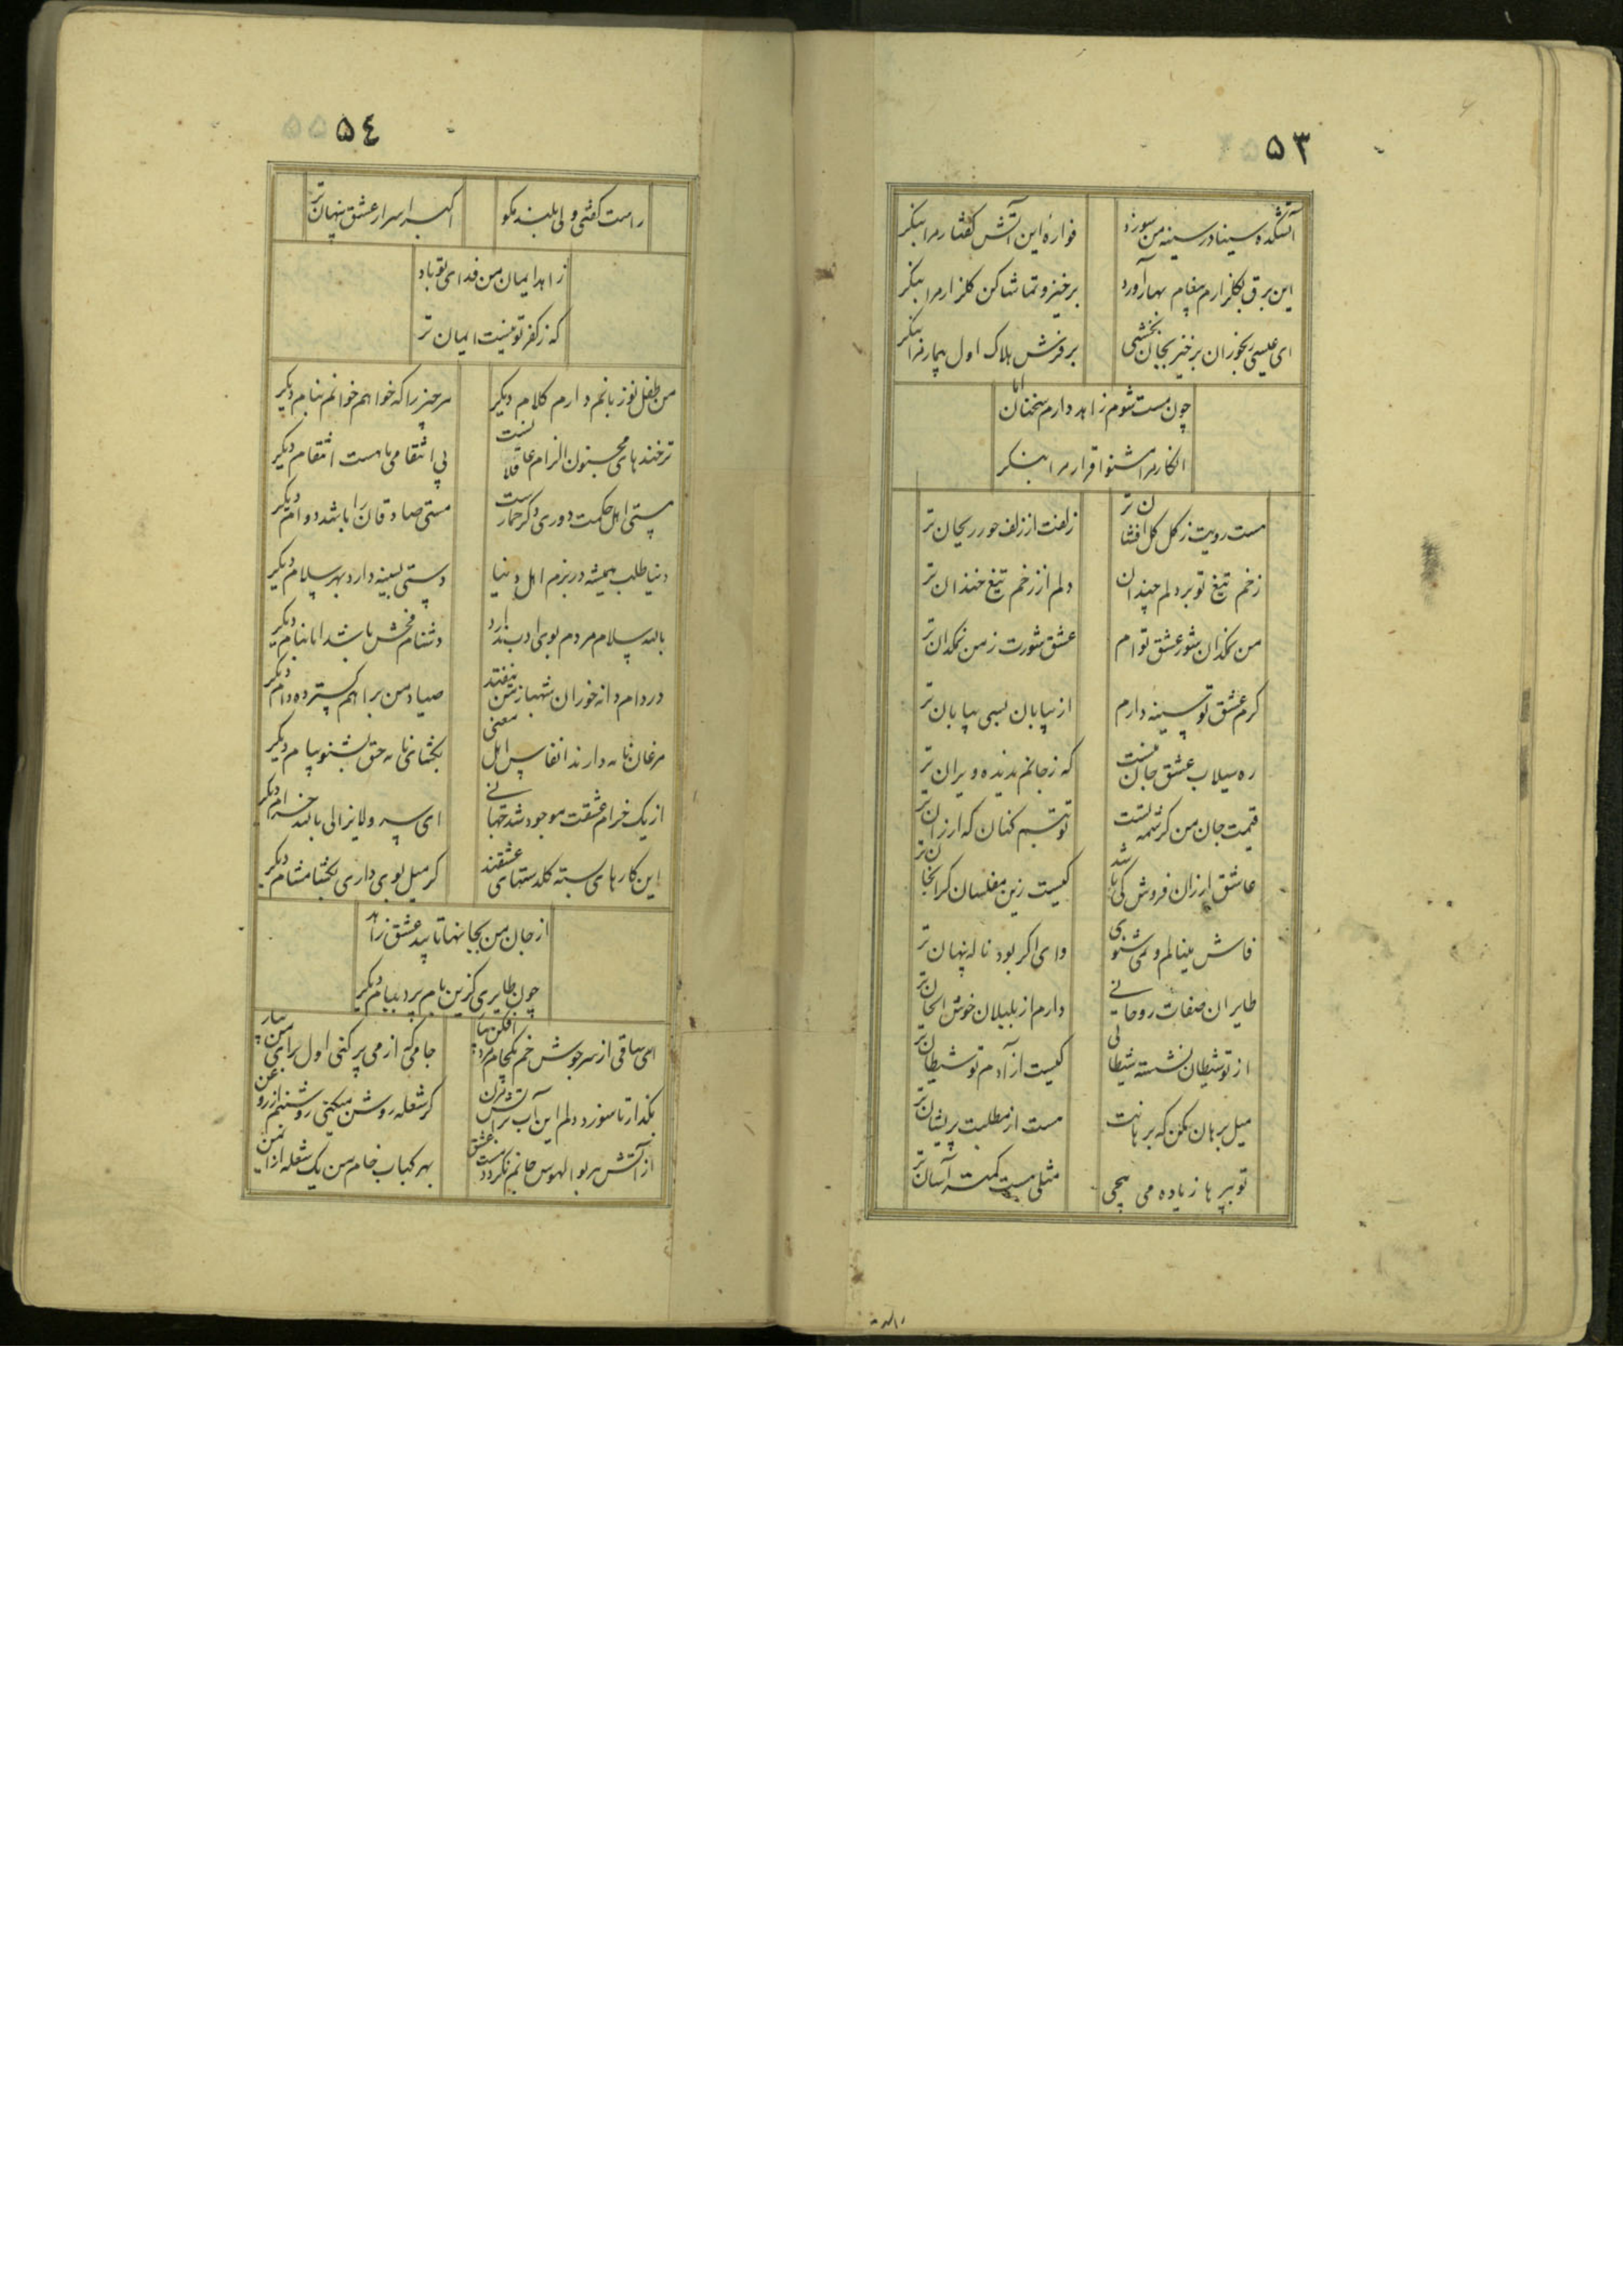 ۵۳
آتشکده سینا در سینه من سوزد
فواره این آتش گفتار مرا بنگر
این برق بگلزارم پیغام بهار آورد
برخیز و تماشا کن گلزار مرا بنگر
ای عیسی رنجوران برخیز بجان بخشی
بر فرش هلاک اول بیمار مرا بنگر
چون مست شوم زاهد دارم سخنان اما
انکار مرا مشنو اقرار مرا بنگر
مست رویت ز گل گل افشان تر
زلفت از زلف حور ریحان تر
زخم تیغ تو بر دلم چندان
دلم از زخم تیغ خندان تر
من نمکدان شور عشق تو ام
عشق شورت ز من نمکدان تر
کرم عشق تو بسینه دارم
از بیابان بسی بیابان تر
ره سیلاب عشق جان منست
که ز جانم ندیده ویران تر
قیمت جان من کرشمه تست
تو تبسم کنان که ارزان تر
عاشق ارزان فروش کی باشد
کیست زین مفلسان گرانجان تر
فاش مینالم و نمی شنوی
وای اگر بود ناله پنهان تر
طایران صفات روحانی
دارم از بلبلان خوش الحان تر
از تو شیطان نشسته شیطانی
کیست از آدم تو شیطان تر
میل برهان مکن که برهانت
هست از مطلبت پریشان تر
تو ببر ها زیاده می پیچی
مثلی هست کمتر آسان تر
بالله
۵۴
راست گفتی ولی بلند مگو
اکبر اسرار عشق پنهان تر
زاهد ایمان من فدای تو باد
که ز کفر تو نیست ایمان تر
من طفل نوزبانم دارم کلام دیگر
هر چیز را که خواهم خوانم بنام دیگر
ترخندهای مجنون الزام عاقلانست
بی انتقامی ما هست انتقام دیگر
مستی اهل حکمت دوری دگر خمارست
مستی صادقان را باشد دوام دیگر
دنیا طلب همیشه در بزم اهل دنیا
دستی بسینه دارد بهر سلام دیگر
بالله سلام مردم بوی ادب ندارد
دشنام فحش باشد اما بنام دیگر
در دام دانه خوران شهباز من نیفتد
صیاد من براهم گسترده دام دیگر
مرغان نامه دارند انفاس اهل معنی
بگشای نامه حق بشنو پیام دیگر
از یک خرام عشقت موجود شد جهانی
ای سرو لایزالی بالله خرام دیگر
این کارهای بسته گلدستهای عشقند
گر میل بوی داری بگشا مشام دیگر
از جان من بجانها تابید عشق زاهد
چون طایری کزین بام پرد ببام دیگر
ای ساقی از سرجوش خم یکجام مردافکن بیار
جامی که از می پر کنی اول برای من بیار
بگذار تا سوزد دلم این آب بر آتش مزن
گر شعله روشن میکنی روشنترم از روغن
از آتش هر بوالهوس جانم نگردد مست عشق
بهر کباب خام من یک شعله از ایمن